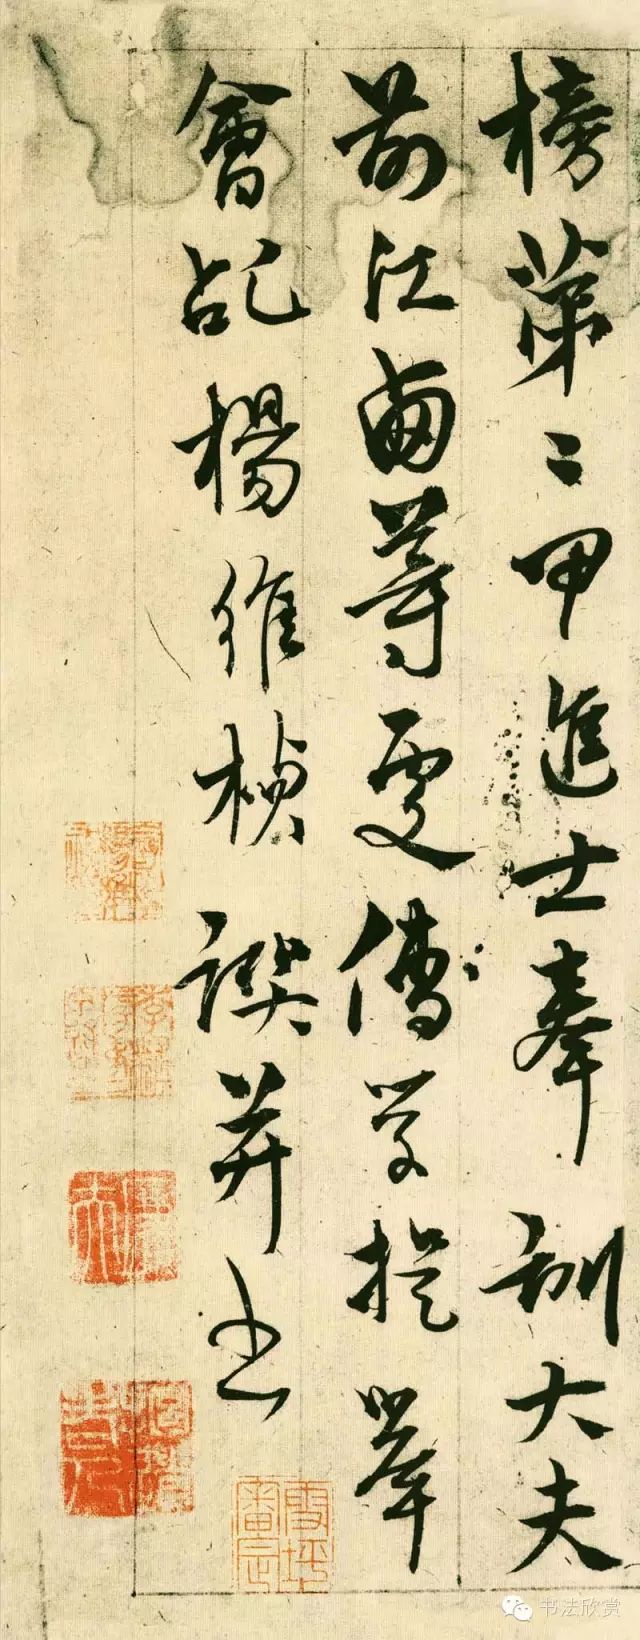 榜第二甲進士奉訓大夫
前江西等處儒學提舉
會稽楊維楨譔并書
雪坪審定
书法欣赏